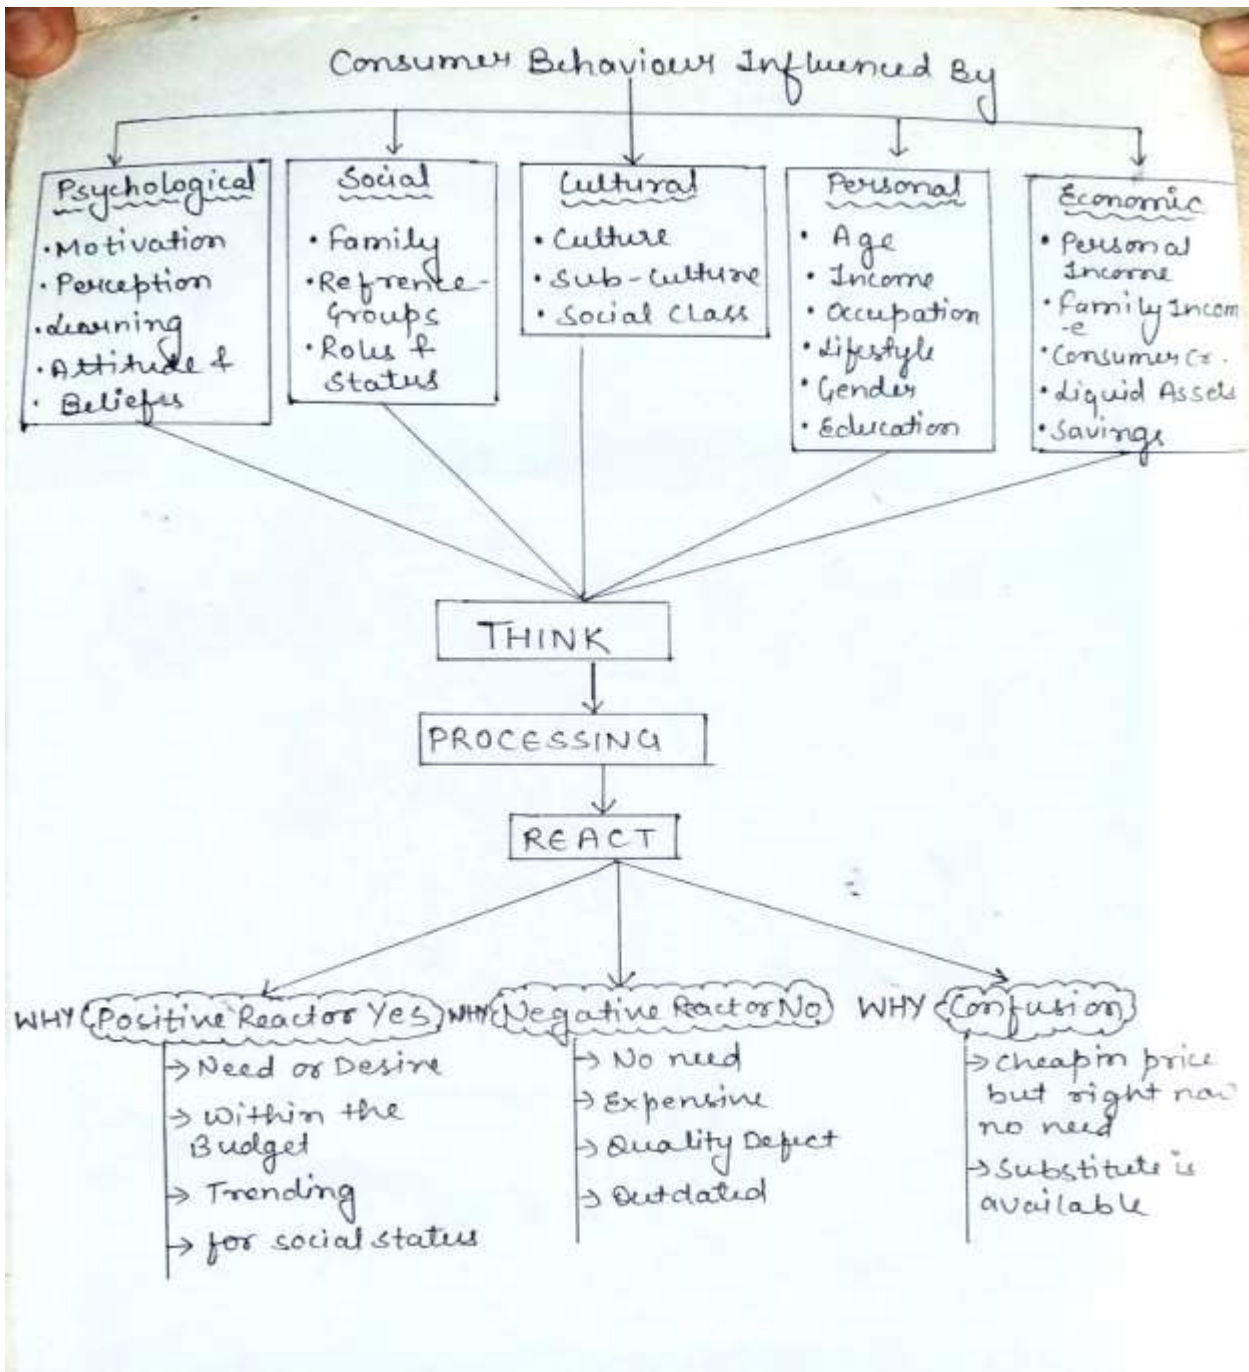 Consumer Behaviour Influenced By
Psychological
• Motivation
• Perception
• Learning
• Attitude &
• Beliefs
Social
• Family
• Refrence-
Groups
• Roles &
Status
Cultural
• Culture
• Sub-Culture
• Social Class
Personal
• Age
• Income
• Occupation
• Lifestyle
• Gender
• Education
Economic
• Personal
Income
• Family Incom
-e
• Consumer Cr.
• Liquid Assets
• Savings
THINK
PROCESSING
REACT
WHY Positive React or Yes
→ Need or Desire
→ Within the
Budget
→ Trending
→ for social status
WHY Negative React or No
→ No need
→ Expensive
→ Quality Defect
→ Outdated
WHY Confusion
→ Cheap in price
but right now
no need
→ Substitute is
available